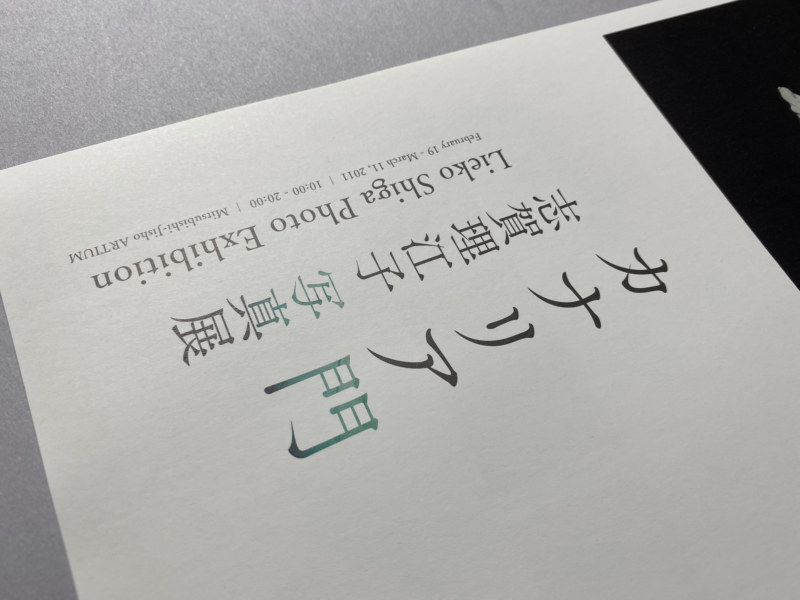 カナリア門
志賀理江子 写真展
Lieko Shiga Photo Exhibition
February 19 - March 11, 2011 | 10:00 - 20:00 | Mitsubishi-Jisho ARTIUM